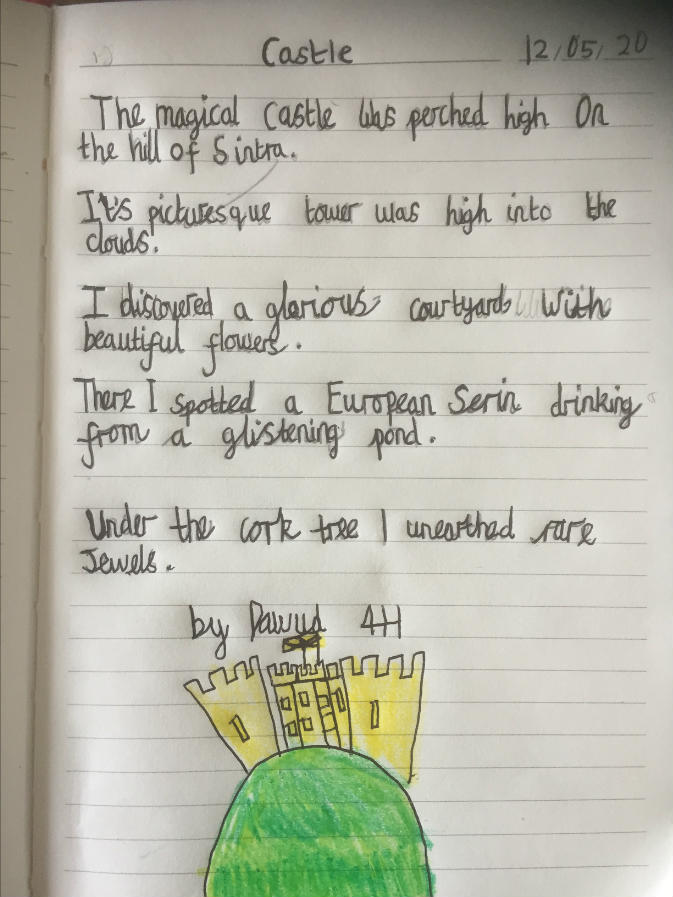 Castle 12/05/20
The magical Castle Was perched high On
the hill of Sintra.
It's picturesque tower was high into the
clouds.
I discovered a glorious courtyard With
beautiful flowers.
There I spotted a European Serin drinking
from a glistening pond.
Under the cork tree I unearthed rare
Jewels.
by Dawud 4H